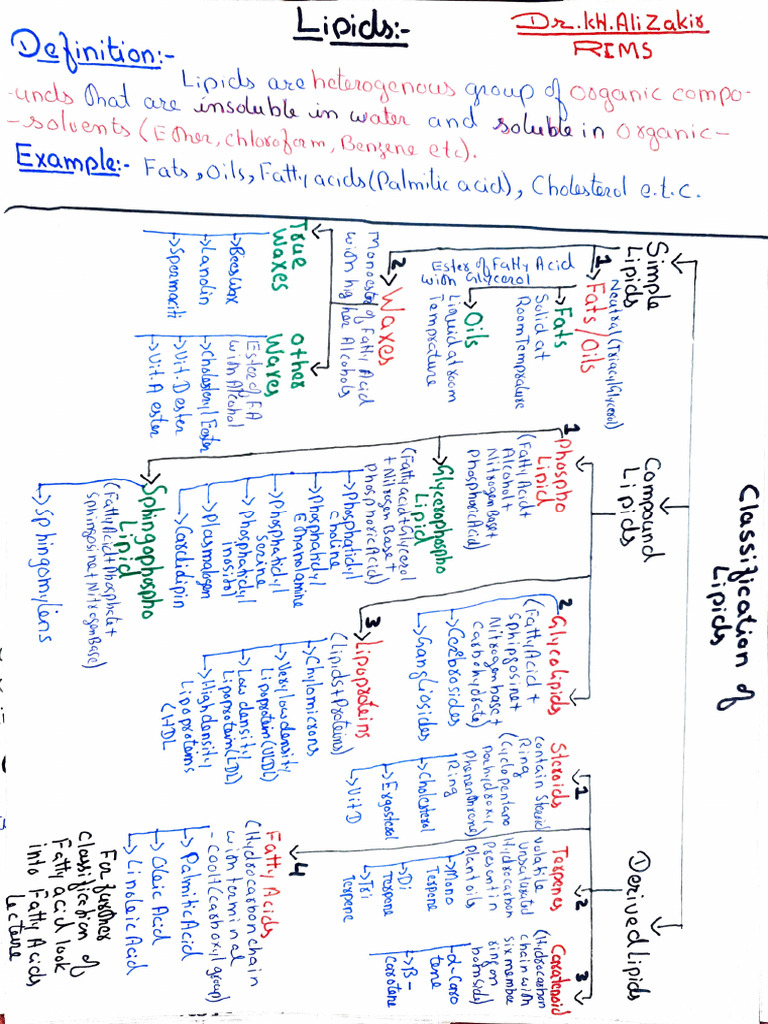 Lipids:-
Dr.kH.AliZakir
RIMS
Definition:-
Lipids are heterogenous group of Organic compo-
-unds that are insoluble in water and soluble in Organic-
-solvents (Ether, chloroform, Benzene etc).
Example:- Fats, Oils, Fatty acids (Palmitic acid), Cholesterol e.t.c.
Classification of
Lipids
Simple
Lipids
1 Fats/Oils
Neutral (Triacyl Glycerol)
Ester of Fatty Acid
with Glycerol
Fats
Solid at
Room Temprature
Oils
Liquid at room
Temprature
2 Waxes
Monoester of Fatty Acid
with higher Alcohols
True
Waxes
Bees Wax
Lanolin
Spermaciti
Other
Waxes
Ester of FA
with Alcohol
Cholesteryl Ester
Vit.D ester
Vit.A ester
Compound
Lipids
1 Phospho
Lipid
(Fatty Acid+
Alcohol+
Nitrogen Base+
Phosphoric Acid)
Glycerophospho
Lipid
(Fatty acid+Glycerol
+Nitrogen Base+
phosphoric Acid)
Phosphatidyl
choline
Phosphatidyl
Ethanolamine
Phosphatidyl
Serine
Phosphatidyl
Inositol
Plasmalogen
Cardidipin
Sphingophospho
Lipid
(Fatty Acid+Phosphate+
Sphingosine+Nitrogen Base)
Sphingomylens
2 GlycoLipids
(Fatty Acid+
Sphingosine+
Nitrogen base+
carbohydrate)
Cerebrosides
GangLiosides
3 Lipoproteins
(Lipids+Proteins)
Chylomicrons
Very low density
Lipoprotein (VLDL)
Low density
Lipoprotein (LDL)
High density
Lipoproteins
(HDL
Derived Lipids
1 Steroids
contain Steroid
Ring
(Cyclopentano
phenenthrene)
Ring
Cholesterol
Ergosterol
Vit D
2 Terpenes
volatile
unsaturated
Hydrocarbon
Present in
plant oils
Mono
Terpene
Di
Terpene
Tri
Terpene
3 Caratenoid
(Hydrocarbon
chain with
six member
ring on
both sides)
α-Caro
tene
B-
Carotene
4 Fatty Acids
(Hydrocarbon chain
with terminal
-COOH (carboxyl group)
Palmitic Acid
Oleic Acid
Linoleic Acid
For further
Classification of
Fatty acid look
into Fatty Acids
Lecture